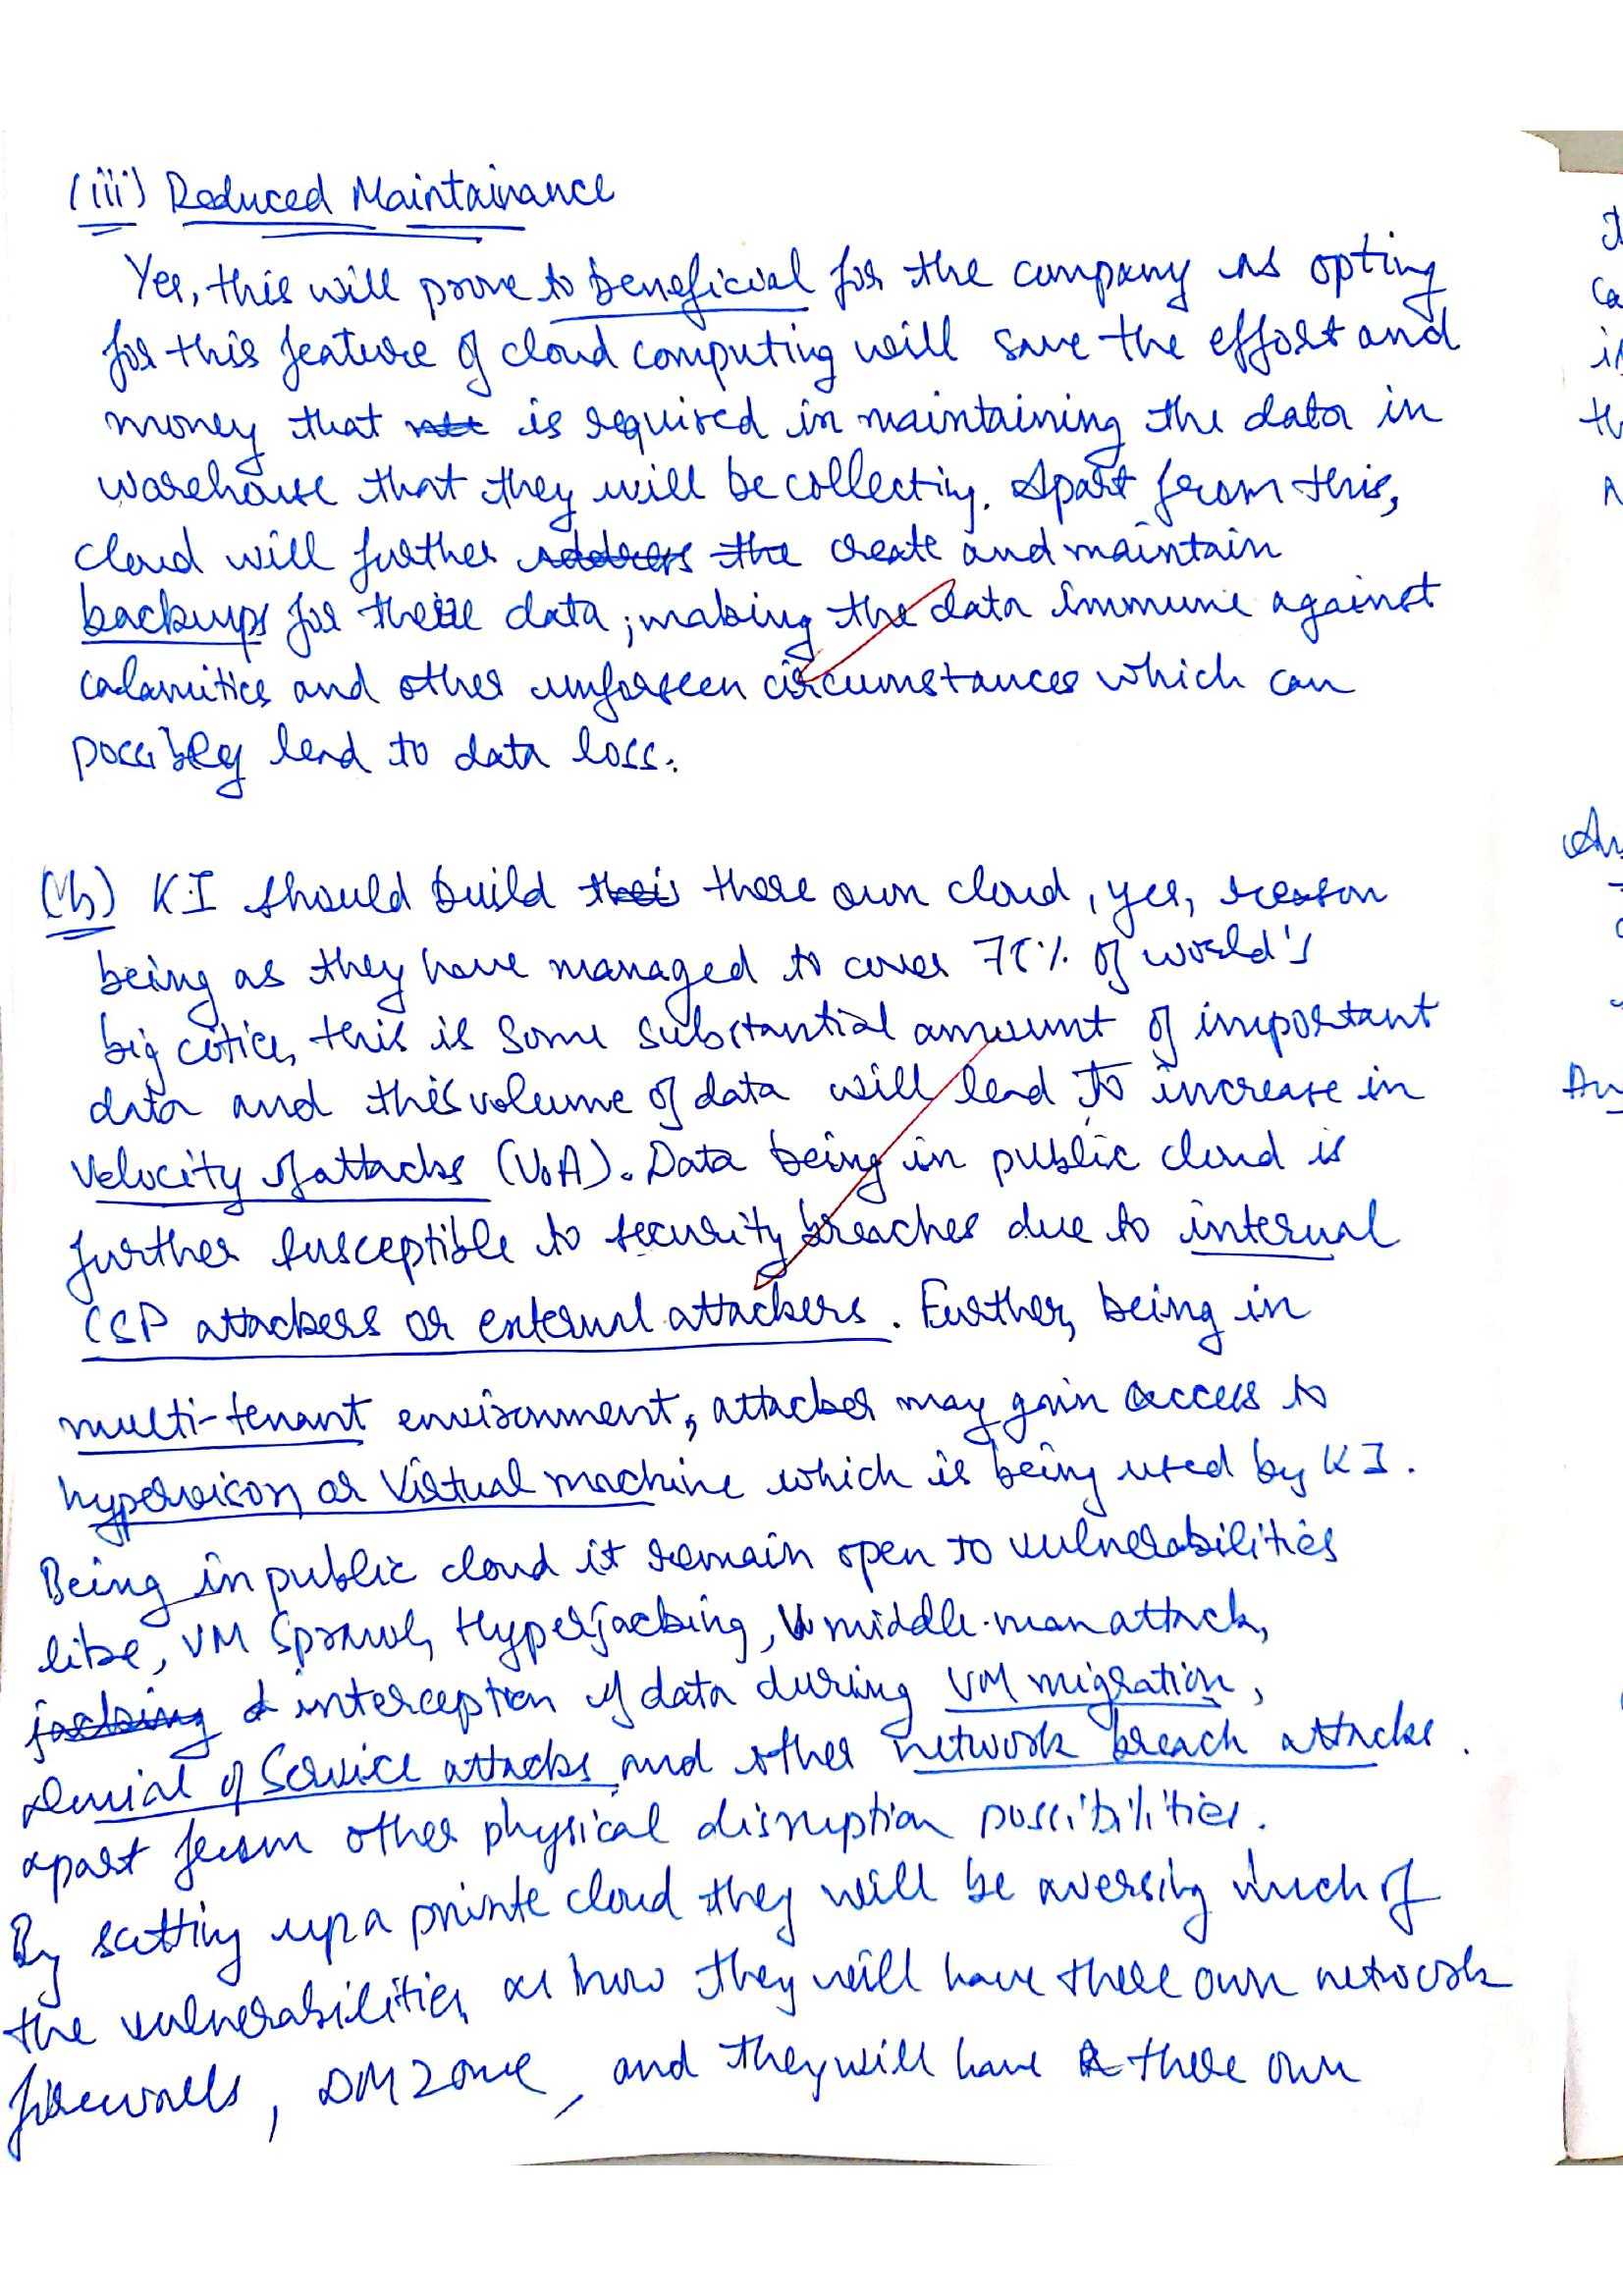 (iii) Reduced Maintainance
Yes, this will prove to beneficial for the company as opting
for this feature of cloud computing will save the effort and
money that is required in maintaining the data in
warehouse that they will be collecting. Apart from this,
cloud will further address the create and maintain
backups for these data; making the data immune against
calamities and other unforseen circumstances which can
possibly lead to data loss.
(b) K.I should build their there own cloud, yes, reason
being as they have managed to cover 75% of world's
big cities, this is some substantial amount of important
data and this volume of data will lead to increase in
velocity of attacks (VoA). Data being in public cloud is
further susceptible to security breaches due to internal
CSP attackers or external attackers. Further, being in
multi-tenant environment, attacker may gain access to
hypervisor or Virtual machine which is being used by K I.
Being in public cloud it remain open to vulnerabilities
like, VM Sprawl, Hyperjacking, middle-man attack,
jacking & interception of data during VM migration,
Denial of Service attacks and other network breach attacks.
apart from other physical disruption possibilities.
By setting up a private cloud they will be aversing much of
the vulnerabilities as how they will have there own network
firewalls, DMZone, and they will have there own
It
Ca
th
An
An